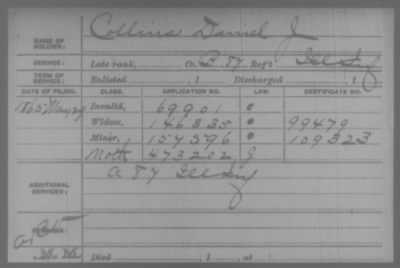 NAME OF SOLDIER: Collins Daniel J
SERVICE: Late rank, Co. B. 87 Reg't Ill Inf
TERM OF SERVICE: Enlisted , 1 Discharged , 1
DATE OF FILING. CLASS. APPLICATION NO. LAW. CERTIFICATE NO.
1865 May 29 Invalid, 69901
Widow, 146335 99479
Minor, 1 157596 109323
Moth 473202 J
ADDITIONAL SERVICES: 87 Ill Inf
Died , 1 , at